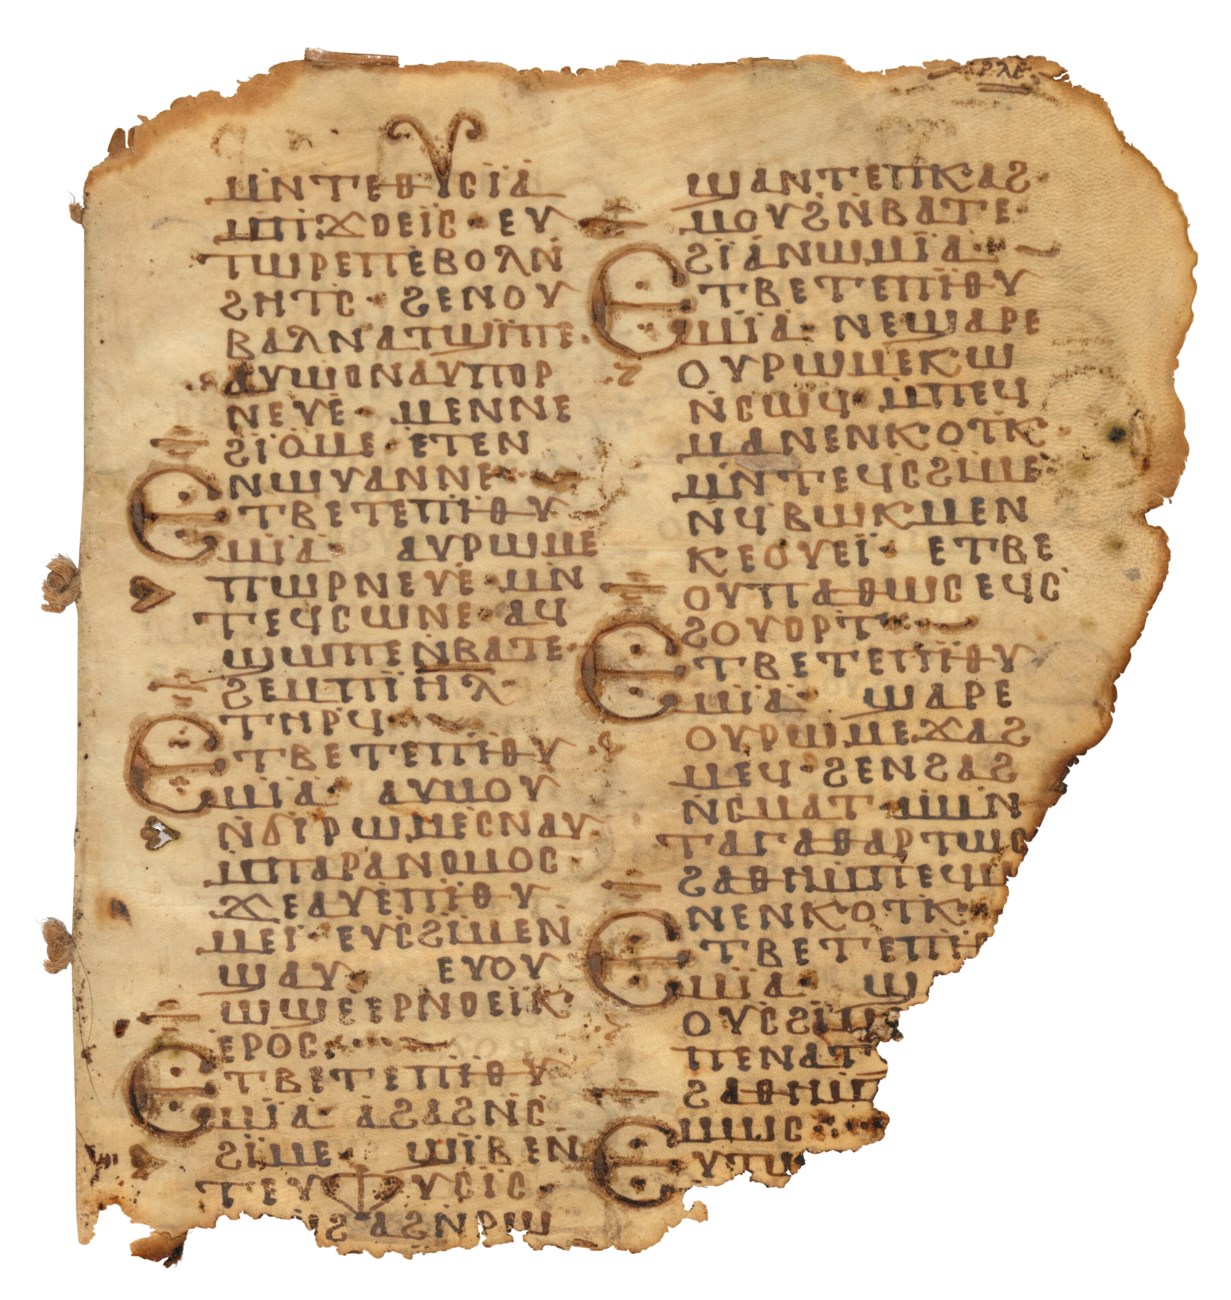 ⲣⲗⲉ
ⲙⲛⲧⲉⲑⲩⲥⲓⲁ
ⲙⲡϫⲟⲉⲓⲥ· ⲉⲩ
ⲧⲱⲣⲉⲡⲉⲃⲟⲗⲛ
ϩⲏⲧⲥ· ϩⲉⲛⲟⲩ
ⲃⲁⲗⲛⲁⲧϣⲓⲡⲉ·
ⲁⲩⲱⲟⲛⲁⲩⲡⲟⲣ
ⲛⲉⲩⲉ· ⲙⲉⲛⲛⲉ
ϩⲓⲟⲙⲉ· ⲉⲧⲉⲛ
ⲛϣⲩⲁⲛⲛⲉ·
ⲉⲧⲃⲉⲧⲉⲡⲓⲑⲩ
ⲙⲓⲁ· ⲁⲩⲣⲱⲙⲉ
ⲡⲱⲣⲛⲉⲩⲉ· ⲙⲛ
ⲧⲉϥⲥⲱⲛⲉ· ⲁϥ
ϣⲱⲡⲉⲛⲃⲁⲧⲉ·
ϩⲉⲙⲡⲓⲏⲗ·
ⲧⲏⲣϥ·
ⲉⲧⲃⲉⲧⲉⲡⲓⲑⲩ
ⲙⲓⲁ· ⲁⲩⲙⲟⲩ
ⲛϭⲓⲣⲱⲙⲉⲥⲛⲁⲩ·
ⲙⲡⲁⲣⲁⲛⲟⲙⲟⲥ·
ϫⲉⲁⲩⲉⲡⲓⲑⲩ
ⲙⲉⲓ· ⲉⲩⲥϩⲓⲙⲉⲛ
ϣⲁⲩ· ⲉⲩⲟⲩ
ⲱϣⲉⲉⲣⲛⲟⲉⲓⲕ
ⲉⲣⲟⲥ·
ⲉⲧⲃⲉⲧⲉⲡⲓⲑⲩ
ⲙⲓⲁ· ⲁϩⲁϩⲛⲥ
ϩⲓⲙⲉ· ϣⲓⲃⲉⲛ
ⲧⲉⲩⲫⲩⲥⲓⲥ·
ϩⲁϩⲛⲣⲱ
ϣⲁⲛⲧⲉⲡⲕⲁϩ·
ⲙⲟⲩϩⲛⲃⲁⲧⲉ·
ϩⲓⲁⲛⲱⲙⲓⲁ·
ⲉⲧⲃⲉⲧⲉⲡⲓⲑⲩ
ⲙⲓⲁ· ⲛⲉϣⲁⲣⲉ
ⲟⲩⲣⲱⲙⲉⲕⲱ
ⲛⲥⲱϥ· ⲙⲡⲉϥ
ⲙⲁⲛⲉⲛⲕⲟⲧⲕ·
ⲙⲛⲧⲉϥⲥϩⲓⲙⲉ·
ⲛϥⲃⲱⲕⲙⲉⲛ
ⲕⲉⲟⲩⲉⲓ· ⲉⲧⲃⲉ
ⲟⲩⲡⲁⲑⲱⲥⲉϥⲥ
ϩⲟⲩⲟⲣⲧ·
ⲉⲧⲃⲉⲧⲉⲡⲓⲑⲩ
ⲙⲓⲁ· ϣⲁⲣⲉ
ⲟⲩⲣⲱⲙⲉϫⲁϩ
ⲙⲉϥ· ϩⲉⲛϩⲁϩ
ⲛⲥⲙⲁⲧ· ⲙⲙⲛ
ⲧⲁⲅⲁⲑⲁⲣⲧⲱⲥ
ϩⲁⲑⲏⲙⲡⲉϥⲙ
ⲛⲉⲛⲕⲟⲧⲕ·
ⲉⲧⲃⲉⲧⲉⲡⲓⲑ
ⲙⲓⲁ· ϣ
ⲟⲩⲥϩⲓⲙⲉ
ⲡⲉⲛⲁⲧ
ϩⲁⲑⲏⲙ
ⲙⲙⲥ·
ⲉⲩⲧⲙ